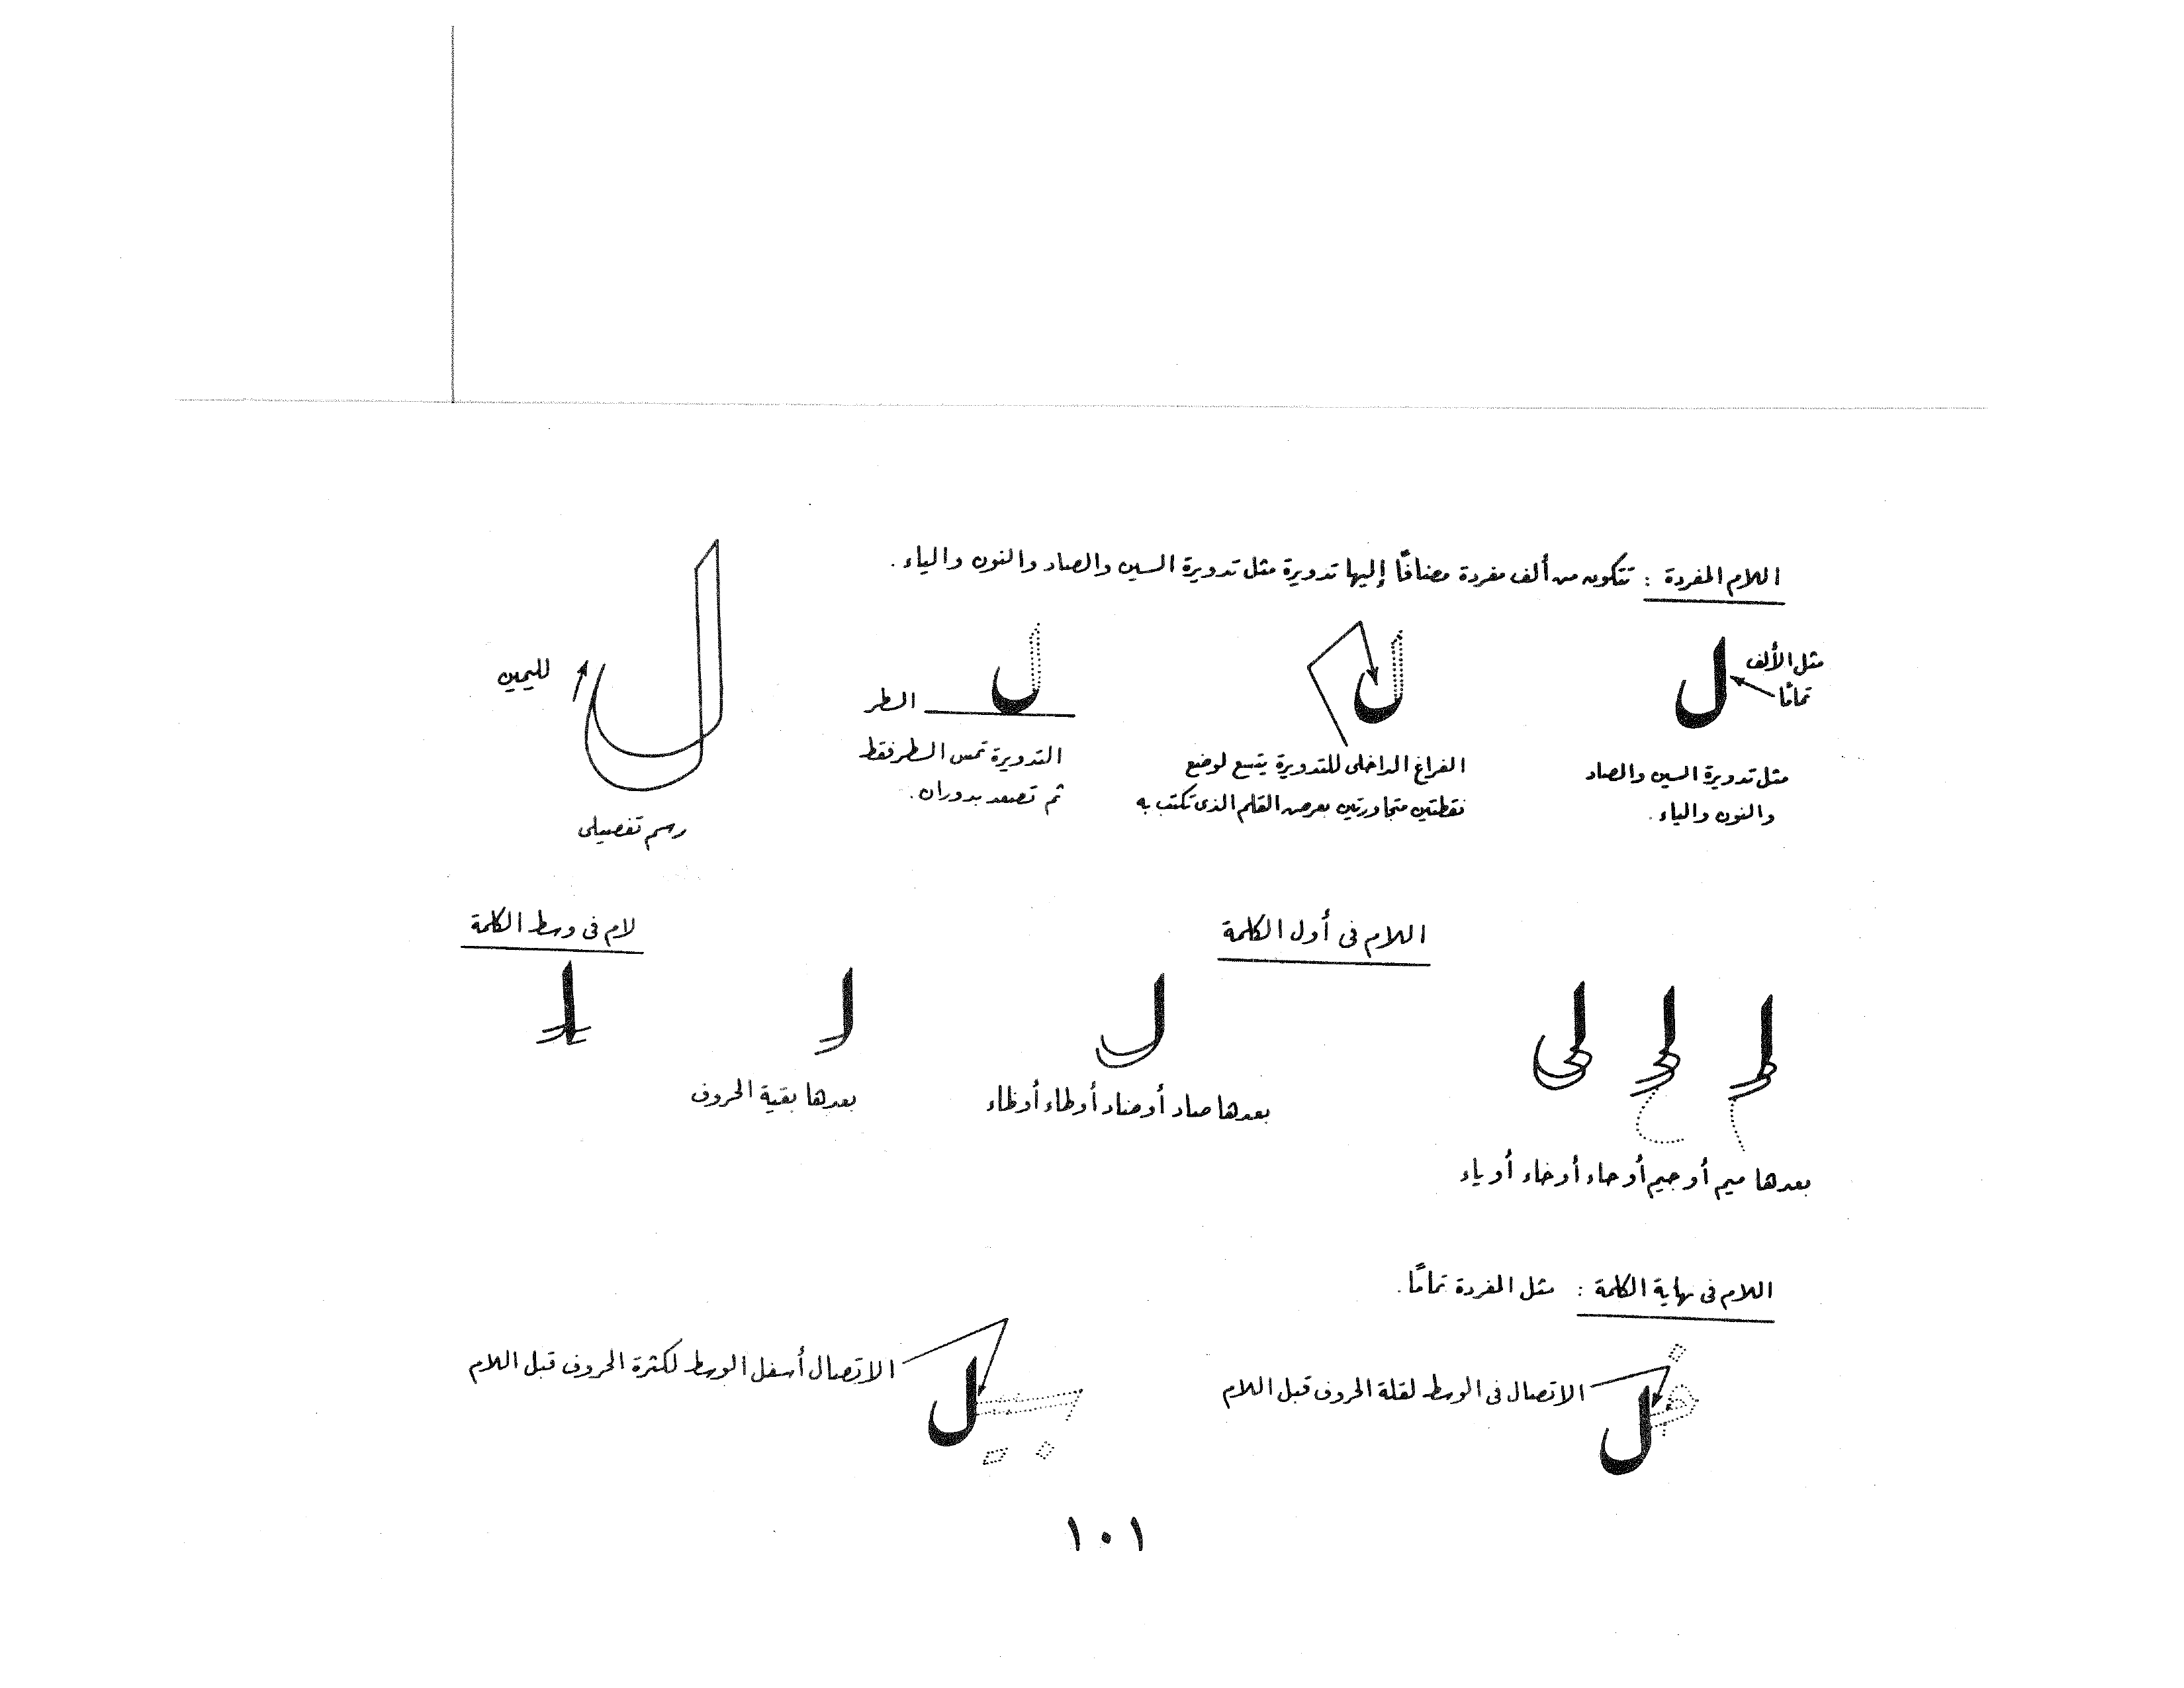 اللام المفردة : تتكون من ألف مفردة مضافًا إليها تدويرة مثل تدويرة السين والصاد والنون والياء .
مثل الألف
تمامًا
ل
مثل تدويرة السين والصاد
والنون والياء .
ل
الفراغ الداخلى للتدويرة يتسع لوضع
نقطتين متجاورتين بعرض القلم الذى تكتب به
ل
السطر
التدويرة تمس السطر فقط
ثم تصعد بدوران .
ل
لليمين
رسم تفصيلى
اللام فى أول الكلمة
بعدها ميم أو جيم أو حاء أو خاء أو ياء
بعدها صاد أو ضاد أو طاء أو ظاء
بعدها بقية الحروف
لام فى وسط الكلمة
اللام فى نهاية الكلمة : مثل المفردة تمامًا .
الاتصال فى الوسط لقلة الحروف قبل اللام
ل
الاتصال أسفل الوسط لكثرة الحروف قبل اللام
ل
١٠١